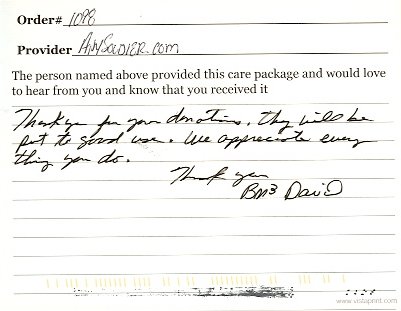 Order# 1098
Provider AnySoldier.com
The person named above provided this care package and would love
to hear from you and know that you received it
Thank you for your donations. They will be
put to good use. We appreciate every
thing you do.
Thank you
BM3 David
www.vistaprint.com